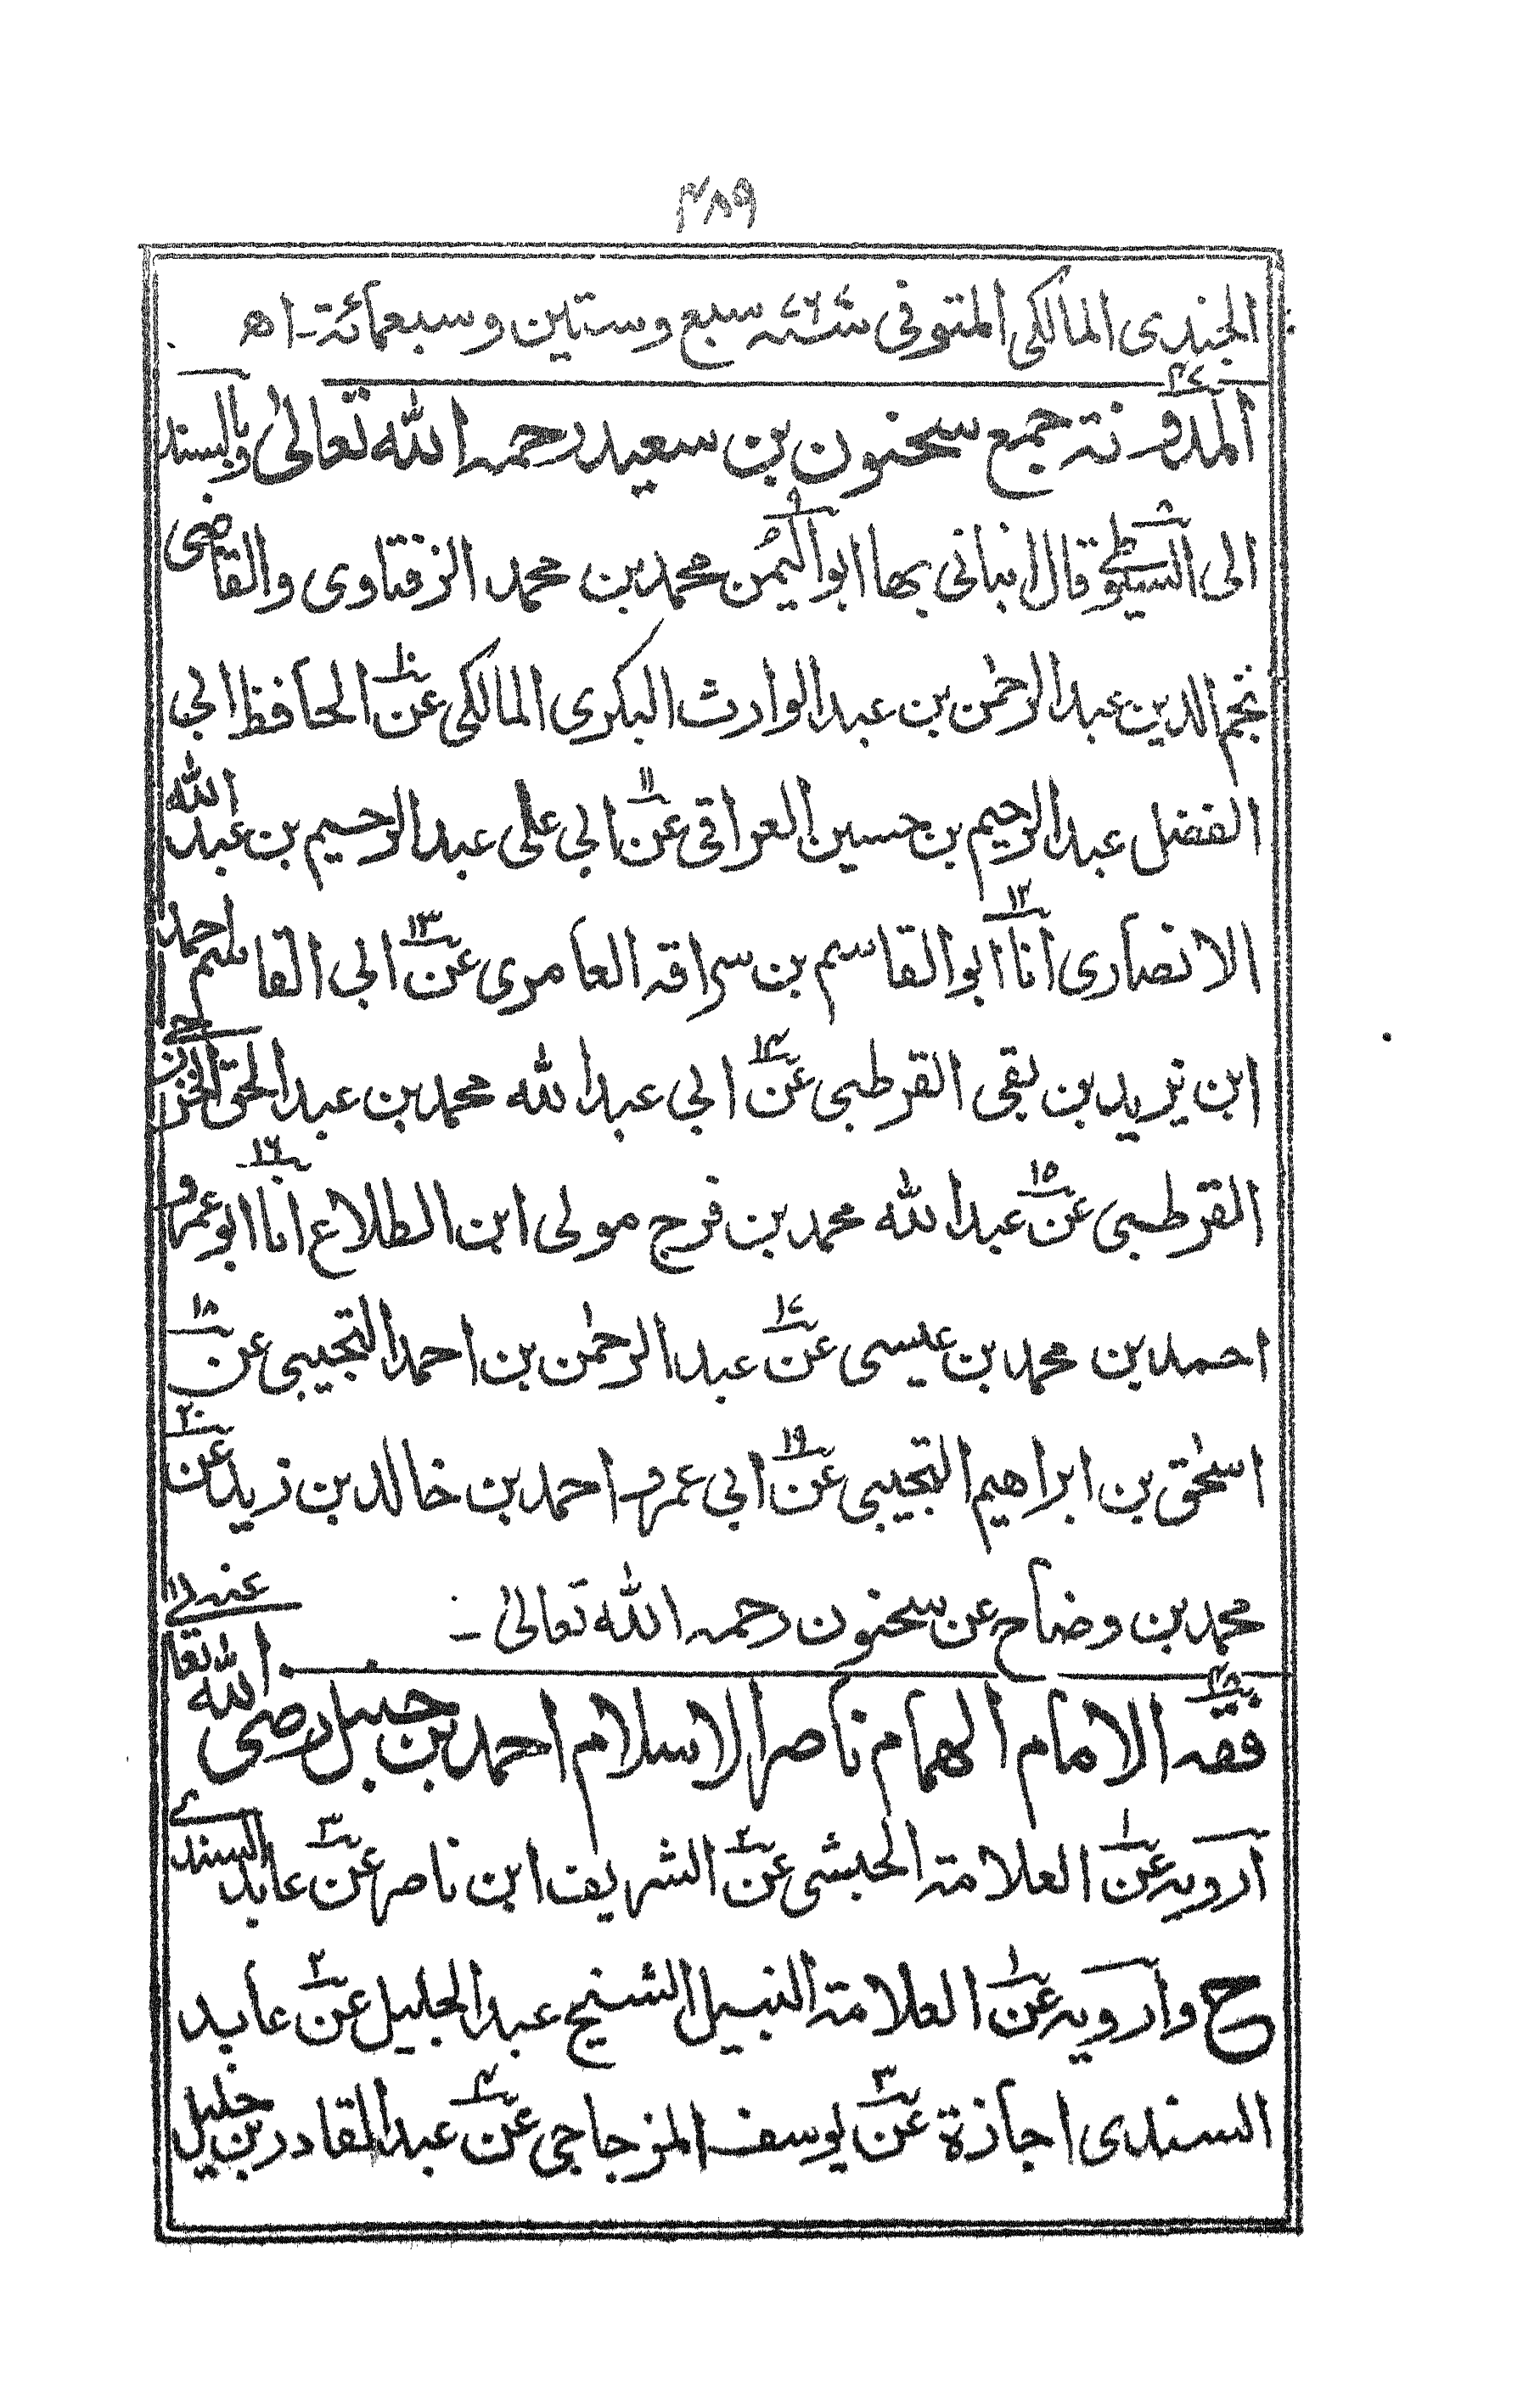 ٣٨٩
الجندى المالكى المتوفى سنة ٧٦٧ سبع وستين وسبعمائة ـ اھ
٣٧
المدونة جمع سحنون بن سعيد رحمه الله تعالىٰ وبالسند
الى السيوطى ٨ قال انبانى بها ابو اليُمن ٩ محمد بن محمد الزفتاوى والقاضى
نجم الدين عبد الرحمٰن بن عبد الوارث البكرى المالكى عن ١٠ الحافظ ابى
الفضل عبد الرحيم بن حسين العراقى عن ١١ ابى على عبد الرحيم بن عبد الله
الانصارى انا ١٢ ابو القاسم بن سراقه العامرى عن ١٣ ابى القاسم احمد
ابن يزيد بن بقى القرطبى عن ١٤ ابى عبد الله محمد بن عبد الحق الخزرجى
القرطبى عن ١٥ عبد الله محمد بن فرج مولى ابن الطلاع انا ١٦ ابو عمرو
احمد بن محمد بن عيسى عن ١٧ عبد الرحمٰن بن احمد التجيبى عن ١٨
اسحٰق بن ابراهيم التجيبى عن ١٩ ابى عمرو احمد بن خالد بن زيد عن ٢٠
محمد بن وضاح عن سحنون رحمه الله تعالىٰ ـ
٣٨
فقه الامام الهمام ناصر الاسلام احمد بن حنبل رضى الله تعالى عنه
آرويه عن ١ العلامة الحبشى عن ٢ الشريف ابن ناصر عن ٣ عابد السندى
ح وارويه عن ١ العلامة النبيل الشيخ عبد الجليل عن ٢ عابد
السندى اجازة عن ٣ يوسف المزجاجى عن ٤ عبد القادر بن خليل